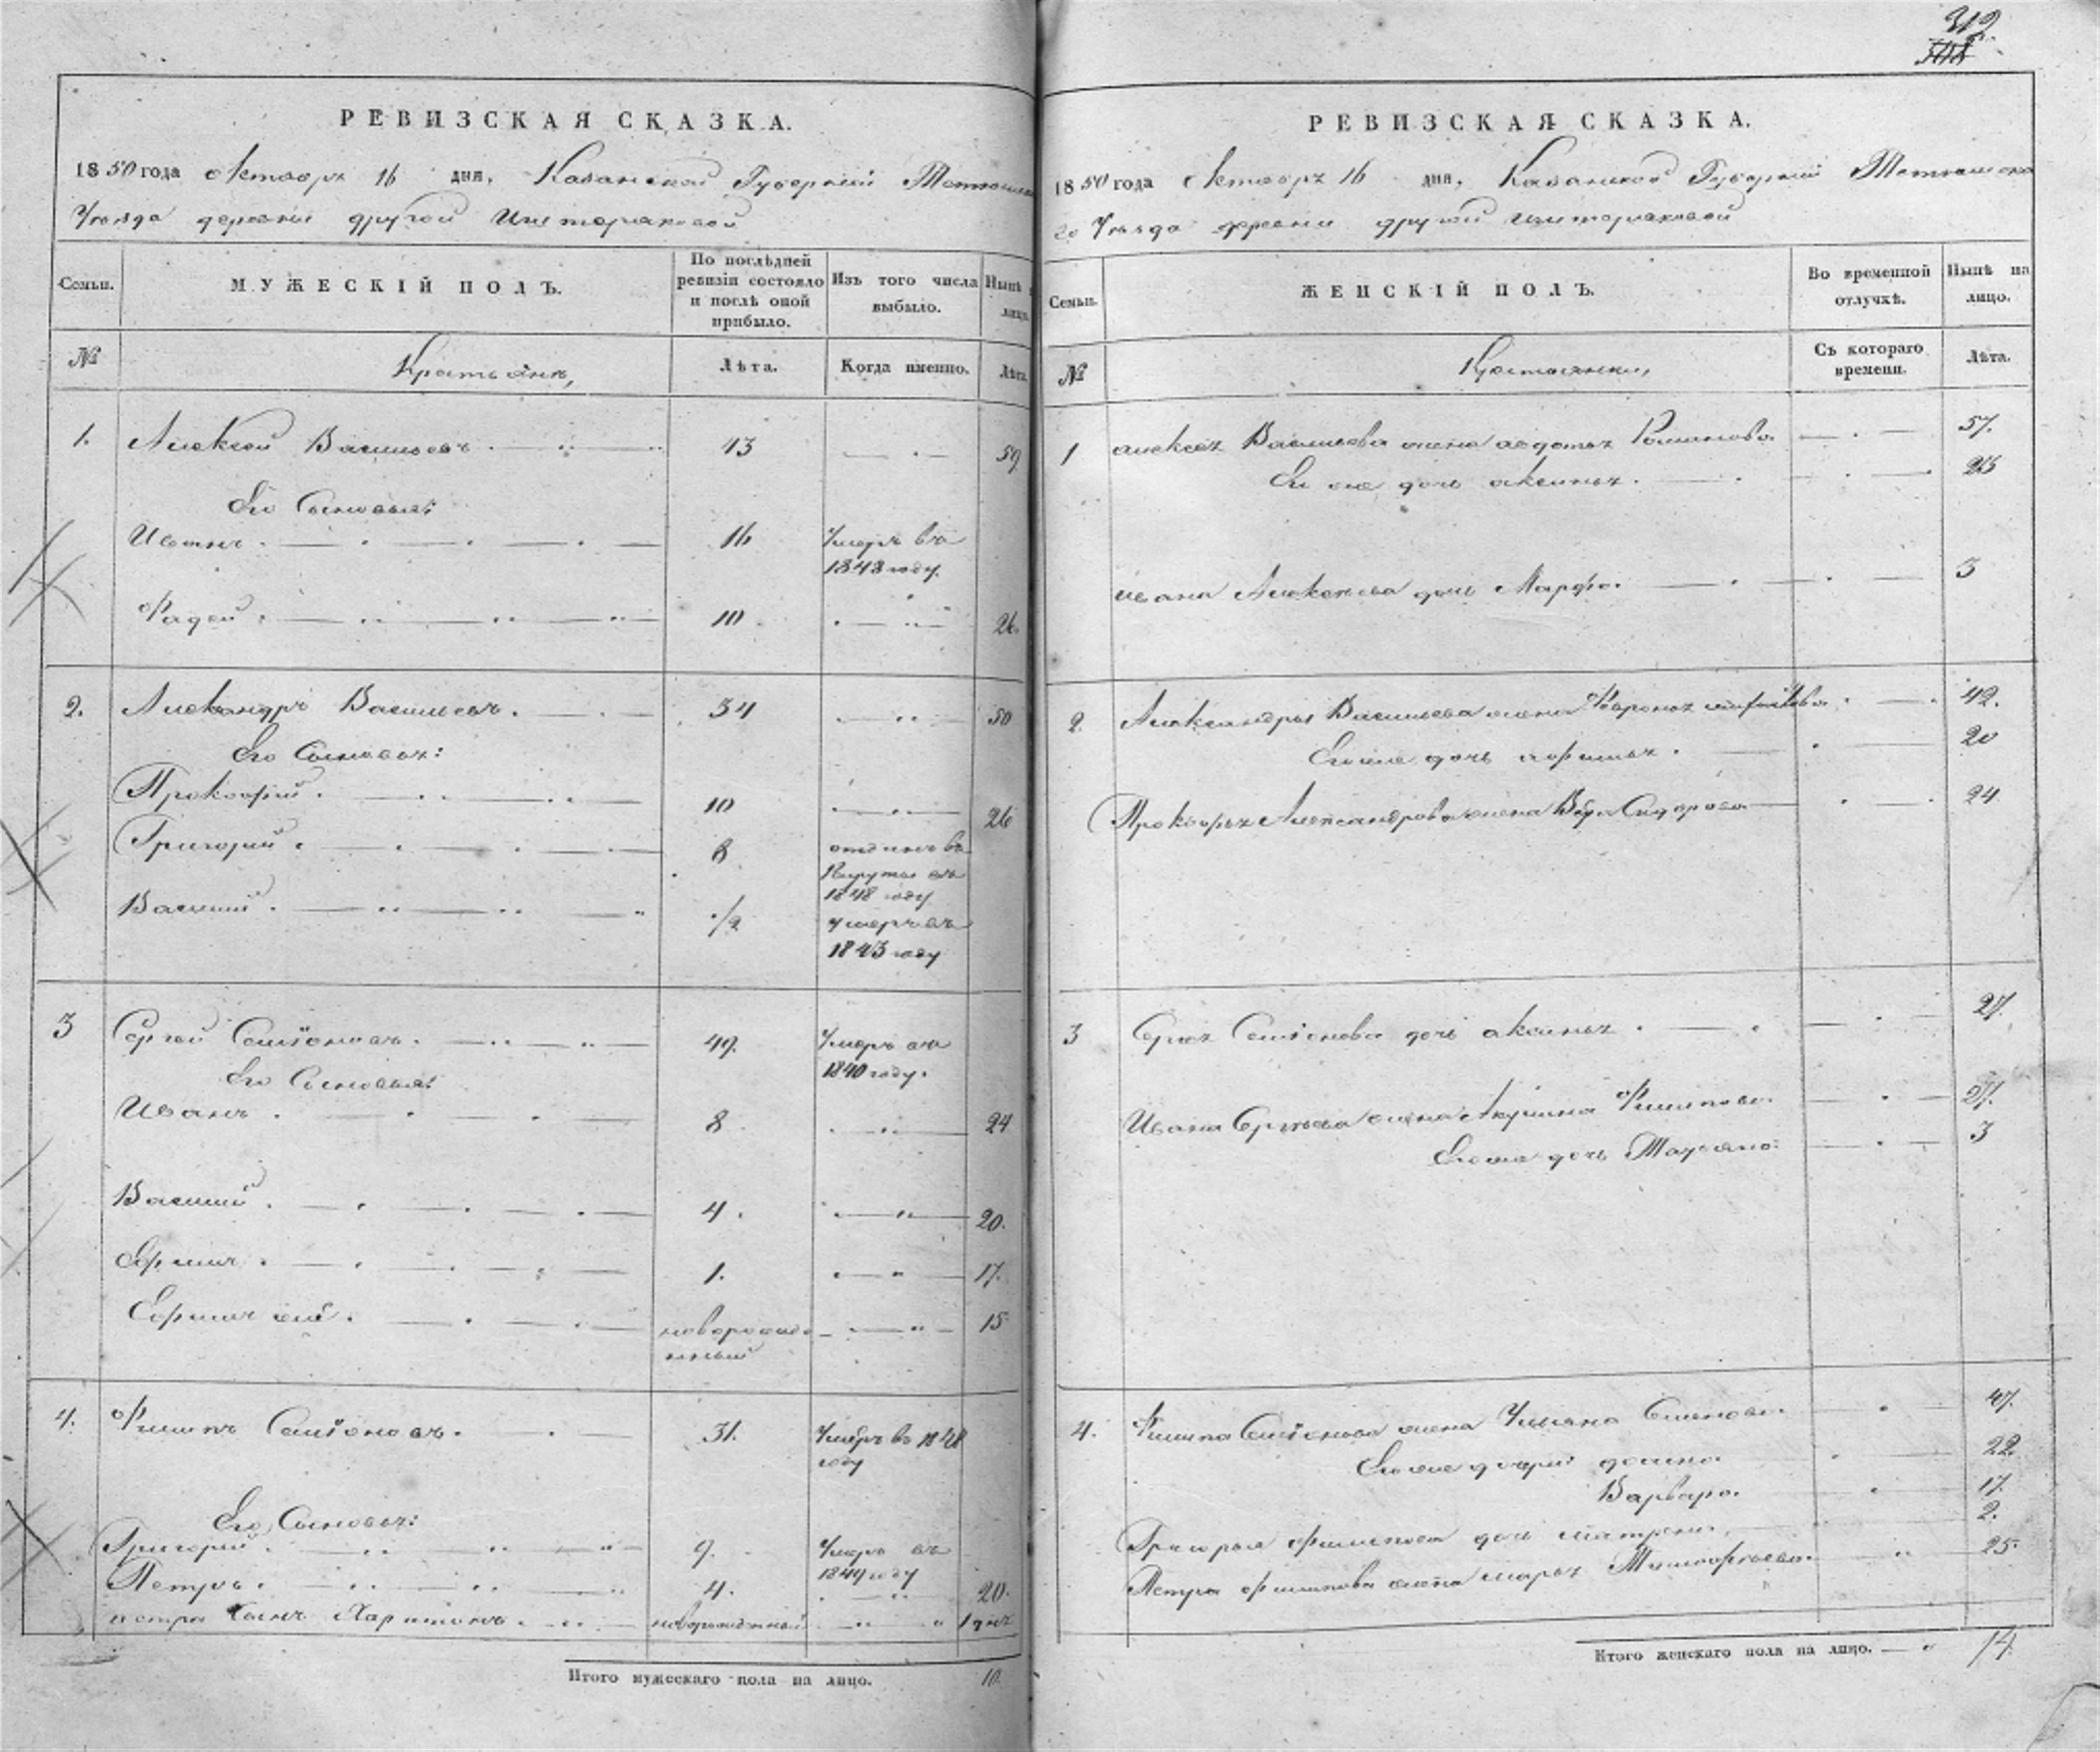 312
РЕВИЗСКАЯ СКАЗКА.
1850 года октября 16 дня, Казанской Губернии
Уезда деревни другой
Семьи.
МУЖЕСКІЙ ПОЛЪ.
По послѣдней ревизіи состояло и послѣ оной прибыло.
Изъ того числа выбыло.
Нынѣ лицо
№
Крестьянъ,
Лѣта.
Когда именно.
Лѣта
1. Алексей Васильевъ 43 59
Его Сыновья:
Иванъ 16 Умеръ въ 1848 году.
Фадей 10 26.
2. Александръ Васильевъ 34 50
Его Сыновья:
Прокофий 10 26
Григорий 8 отданъ въ Рекруты въ 1848 году
Василий 1/2 умеръ въ 1843 году
3 Сергей Семіоновъ 49. Умеръ въ 1840 году.
Его Сыновья:
Иванъ 8 24
Василий 4 20.
Ефимъ 1. 17.
Ефимъ же новорожденный 15
4. Филипъ Семіоновъ 31. Умеръ въ 1848 году
Его Сыновья:
Григорий 9. Умеръ въ 1849 году
Петръ 4. 20.
Петра Сынъ Харитонъ новорожденный 1 дня
Итого мужескаго пола на лицо. 10.
РЕВИЗСКАЯ СКАЗКА.
1850 года октября 16 дня, Казанской Губернии
го Уезда деревни другой
Семьи.
ЖЕНСКІЙ ПОЛЪ.
Во временной отлучкѣ.
Нынѣ на лицо.
№
Крестьянки,
Съ котораго времени.
Лѣта.
1 алексея Васильева жена авдотья Романова 57.
Ево же дочь аксинья
ивана Алексеева дочь Марфа 3
2. Александры Васильева жена Февронья 42.
Ево же дочь афимья 20
Прокофья Александрова жена Вера Сидорова 24
3 Сергея Семіонова дочь аксинья 27.
Ивана Сергеева жена Акулина Филипова 27.
Ево же дочь Татьяна 3
4. Филипа Семіонова жена Ульяна Семенова 47.
Ево же дочери 22.
Варвара 17.
Григорья Филипова дочь матрена 2.
Петра Филипова жена марья Тимофеева 25.
Итого женскаго пола на лицо. 14.